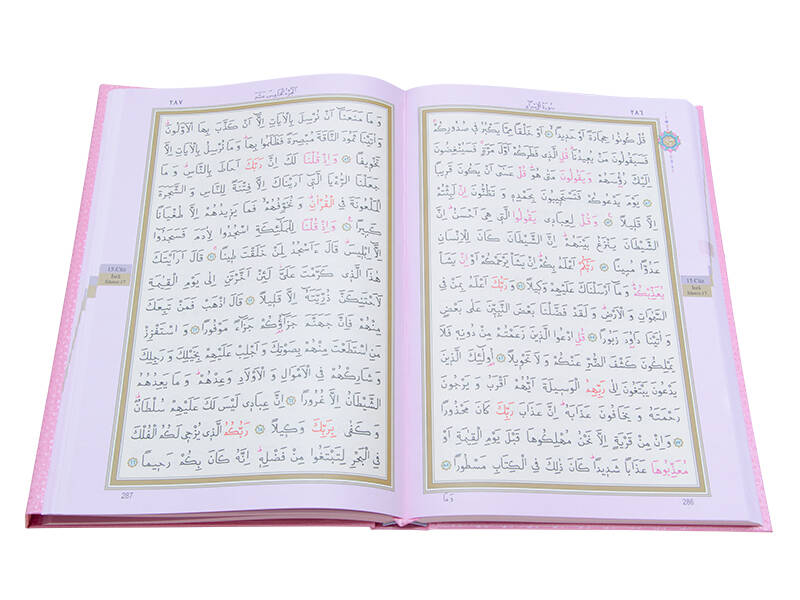 سُورَةُ الْاِسْرَاءِ ٢٨٦
قُلْ كُونُوا حِجَارَةً اَوْ حَدِيدًاۙ ﴿٥٠﴾ اَوْ خَلْقًا مِمَّا يَكْبُرُ فِي صُدُورِكُمْۚ
فَسَيَقُولُونَ مَنْ يُعِيدُنَاۜ قُلِ الَّذِي فَطَرَكُمْ اَوَّلَ مَرَّةٍۚ فَسَيُنْغِضُونَ
اِلَيْكَ رُؤُسَهُمْ وَيَقُولُونَ مَتٰى هُوَۜ قُلْ عَسٰٓى اَنْ يَكُونَ قَرِيبًا
﴿٥١﴾ يَوْمَ يَدْعُوكُمْ فَتَسْتَجِيبُونَ بِحَمْدِهِ وَتَظُنُّونَ اِنْ لَبِثْتُمْ
اِلَّا قَلِيلًا۟ ﴿٥٢﴾ وَقُلْ لِعِبَادِي يَقُولُوا الَّتِي هِيَ اَحْسَنُۜ اِنَّ
الشَّيْطَانَ يَنْزَغُ بَيْنَهُمْۜ اِنَّ الشَّيْطَانَ كَانَ لِلْاِنْسَانِ
عَدُوًّا مُبِينًا ﴿٥٣﴾ رَبُّكُمْ اَعْلَمُ بِكُمْۜ اِنْ يَشَأْ يَرْحَمْكُمْ اَوْ اِنْ يَشَأْ
يُعَذِّبْكُمْۜ وَمَٓا اَرْسَلْنَاكَ عَلَيْهِمْ وَكِيلًا ﴿٥٤﴾ وَرَبُّكَ اَعْلَمُ بِمَنْ فِي
السَّمٰوَاتِ وَالْاَرْضِۜ وَلَقَدْ فَضَّلْنَا بَعْضَ النَّبِيّٖنَ عَلٰى بَعْضٍ
وَاٰتَيْنَا دَاوُ۫دَ زَبُورًا ﴿٥٥﴾ قُلِ ادْعُوا الَّذِينَ زَعَمْتُمْ مِنْ دُونِهِ فَلَا
يَمْلِكُونَ كَشْفَ الضُّرِّ عَنْكُمْ وَلَا تَحْوِيلًا ﴿٥٦﴾ اُو۬لٰٓئِكَ الَّذِينَ
يَدْعُونَ يَبْتَغُونَ اِلٰى رَبِّهِمُ الْوَسِيلَةَ اَيُّهُمْ اَقْرَبُ وَيَرْجُونَ
رَحْمَتَهُ وَيَخَافُونَ عَذَابَهُۜ اِنَّ عَذَابَ رَبِّكَ كَانَ مَحْذُورًا
﴿٥٧﴾ وَاِنْ مِنْ قَرْيَةٍ اِلَّا نَحْنُ مُهْلِكُوهَا قَبْلَ يَوْمِ الْقِيٰمَةِ اَوْ
مُعَذِّبُوهَا عَذَابًا شَدِيدًاۜ كَانَ ذٰلِكَ فِي الْكِتَابِ مَسْطُورًا ﴿٥٨﴾
وَمَا
286
15.Cüz
İsrâ
Sûresi-17
٢٨٧
وَمَا مَنَعَنَٓا اَنْ نُرْسِلَ بِالْاٰيَاتِ اِلَّٓا اَنْ كَذَّبَ بِهَا الْاَوَّلُونَۜ
وَاٰتَيْنَا ثَمُودَ النَّاقَةَ مُبْصِرَةً فَظَلَمُوا بِهَاۜ وَمَا نُرْسِلُ بِالْاٰيَاتِ اِلَّا
تَخْوِيفًا ﴿٥٩﴾ وَاِذْ قُلْنَا لَكَ اِنَّ رَبَّكَ اَحَاطَ بِالنَّاسِۜ وَمَا
جَعَلْنَا الرُّءْيَا الَّتِٓي اَرَيْنَاكَ اِلَّا فِتْنَةً لِلنَّاسِ وَالشَّجَرَةَ
الْمَلْعُونَةَ فِي الْقُرْاٰنِۜ وَنُخَوِّفُهُمْۙ فَمَا يَزِيدُهُمْ اِلَّا طُغْيَانًا
كَبِيرًا۟ ﴿٦٠﴾ وَاِذْ قُلْنَا لِلْمَلٰٓئِكَةِ اسْجُدُوا لِاٰدَمَ فَسَجَدُٓوا
اِلَّٓا اِبْلِيسَۜ قَالَ ءَاَسْجُدُ لِمَنْ خَلَقْتَ طِينًا ﴿٦١﴾ قَالَ اَرَاَيْتَكَ
هٰذَا الَّذِي كَرَّمْتَ عَلَيَّۘ لَئِنْ اَخَّرْتَنِ اِلٰى يَوْمِ الْقِيٰمَةِ
لَاَحْتَنِكَنَّ ذُرِّيَّتَهُٓ اِلَّا قَلِيلًا ﴿٦٢﴾ قَالَ اذْهَبْ فَمَنْ تَبِعَكَ
مِنْهُمْ فَاِنَّ جَهَنَّمَ جَزَٓاؤُ۬كُمْ جَزَٓاءً مَوْفُورًا ﴿٦٣﴾ وَاسْتَفْزِزْ
مَنِ اسْتَطَعْتَ مِنْهُمْ بِصَوْتِكَ وَاَجْلِبْ عَلَيْهِمْ بِخَيْلِكَ وَرَجِلِكَ
وَشَارِكْهُمْ فِي الْاَمْوَالِ وَالْاَوْلَادِ وَعِدْهُمْۜ وَمَا يَعِدُهُمُ
الشَّيْطَانُ اِلَّا غُرُورًا ﴿٦٤﴾ اِنَّ عِبَادِي لَيْسَ لَكَ عَلَيْهِمْ سُلْطَانٌۜ
وَكَفٰى بِرَبِّكَ وَكِيلًا ﴿٦٥﴾ رَبُّكُمُ الَّذِي يُزْجِي لَكُمُ الْفُلْكَ
فِي الْبَحْرِ لِتَبْتَغُوا مِنْ فَضْلِهِۜ اِنَّهُ كَانَ بِكُمْ رَحِيمًا ﴿٦٦﴾
287
15.Cüz
İsrâ
Sûresi-17